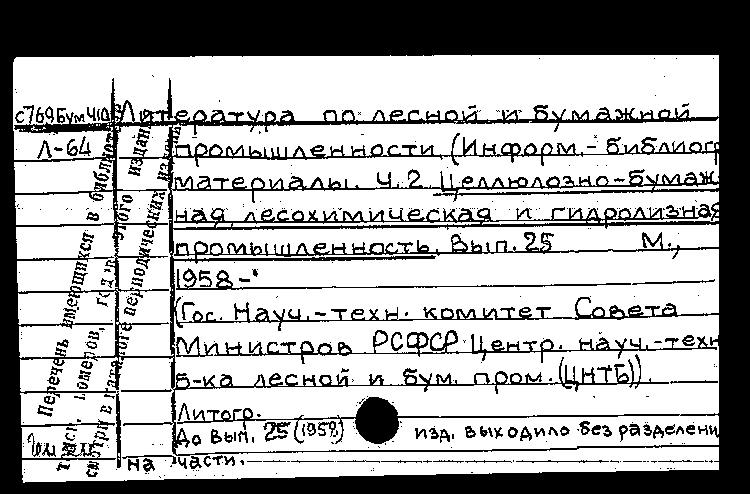 с769Бум410 Литература по лесной и бумажной
Л-64 промышленности (Информ.-библиогр
материалы. Ч.2 Целлюлозно-бумаж
ная, лесохимическая и гидролизная
промышленность. Вып. 25 М.,
1958-
(Гос. Науч.-техн. комитет Совета
Министров РСФСР. Центр. науч.-техн
б-ка лесной и бум. пром. (ЦНТБ)).
Литогр.
До вып. 25 (1958) изд. выходило без разделени
на части.
Перечень имеющихся в библиотеке
номеров, год этого издан
смотри в каталоге периодических издан